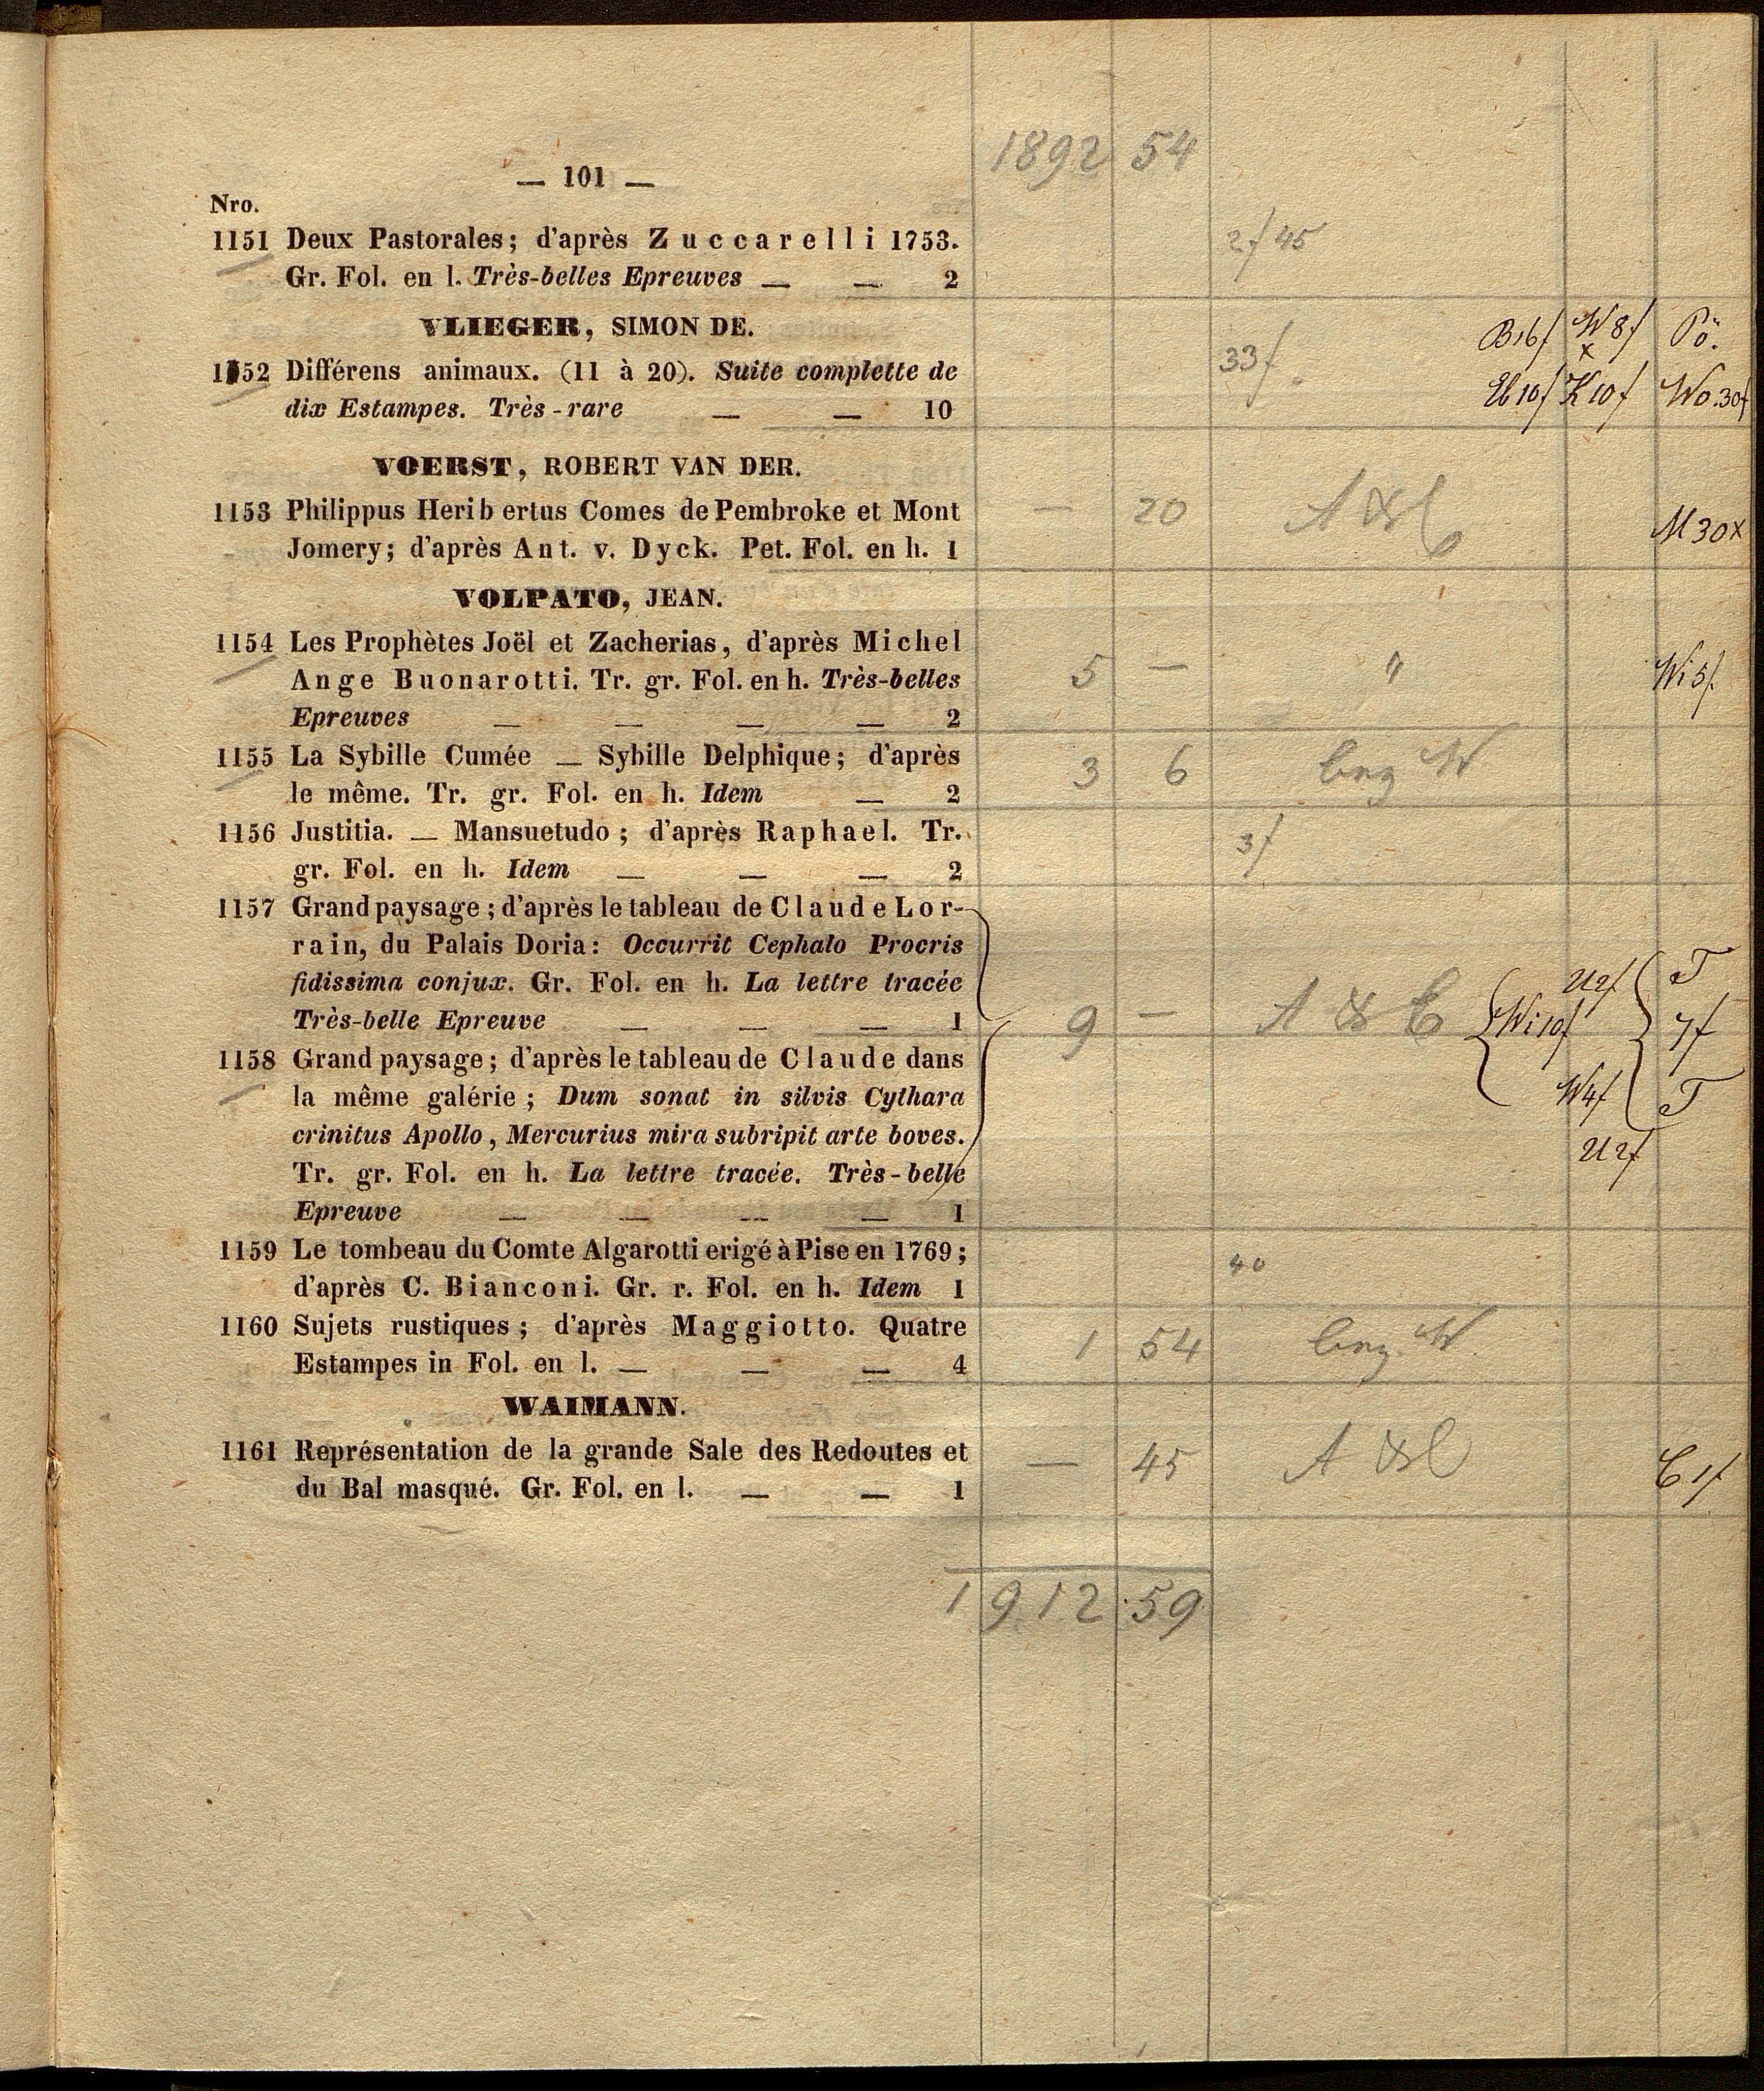 1892 54
— 101 —
Nro.
1151 Deux Pastorales; d'après Zuccarelli 1753.
2f 45
Gr. Fol. en l. Très-belles Epreuves — — 2
VLIEGER, SIMON DE.
B16f W8f Pö.
x
1152 Différens animaux. (11 à 20). Suite complette de
33f
dix Estampes. Très-rare — — 10
Eb10f K10f Wo.30f
VOERST, ROBERT VAN DER.
1153 Philippus Heribertus Comes de Pembroke et Mont
— 20 M30x
Jomery; d'après Ant. v. Dyck. Pet. Fol. en h. 1
VOLPATO, JEAN.
1154 Les Prophètes Joël et Zacherias, d'après Michel
Ange Buonarotti. Tr. gr. Fol. en h. Très-belles
5 — " Wi5f.
Epreuves — — — — 2
1155 La Sybille Cumée — Sybille Delphique; d'après
3 6
le même. Tr. gr. Fol. en h. Idem — 2
1156 Justitia. — Mansuetudo; d'après Raphael. Tr.
3f
gr. Fol. en h. Idem — — — 2
1157 Grand paysage; d'après le tableau de Claude Lor-
rain, du Palais Doria: Occurrit Cephalo Procris
fidissima conjux. Gr. Fol. en h. La lettre tracée
U2f T
Très-belle Epreuve — — — 1
9 — A & C Wi10f 7f
1158 Grand paysage; d'après le tableau de Claude dans
la même galérie; Dum sonat in silvis Cythara
W4f T
crinitus Apollo, Mercurius mira subripit arte boves.
U2f
Tr. gr. Fol. en h. La lettre tracée. Très-belle
Epreuve — — — — 1
1159 Le tombeau du Comte Algarotti erigé à Pise en 1769;
40
d'après C. Bianconi. Gr. r. Fol. en h. Idem 1
1160 Sujets rustiques; d'après Maggiotto. Quatre
1 54
Estampes in Fol. en l. — — — 4
WAIMANN.
1161 Représentation de la grande Sale des Redoutes et
— 45 C1f
du Bal masqué. Gr. Fol. en l. — — 1
1912 59